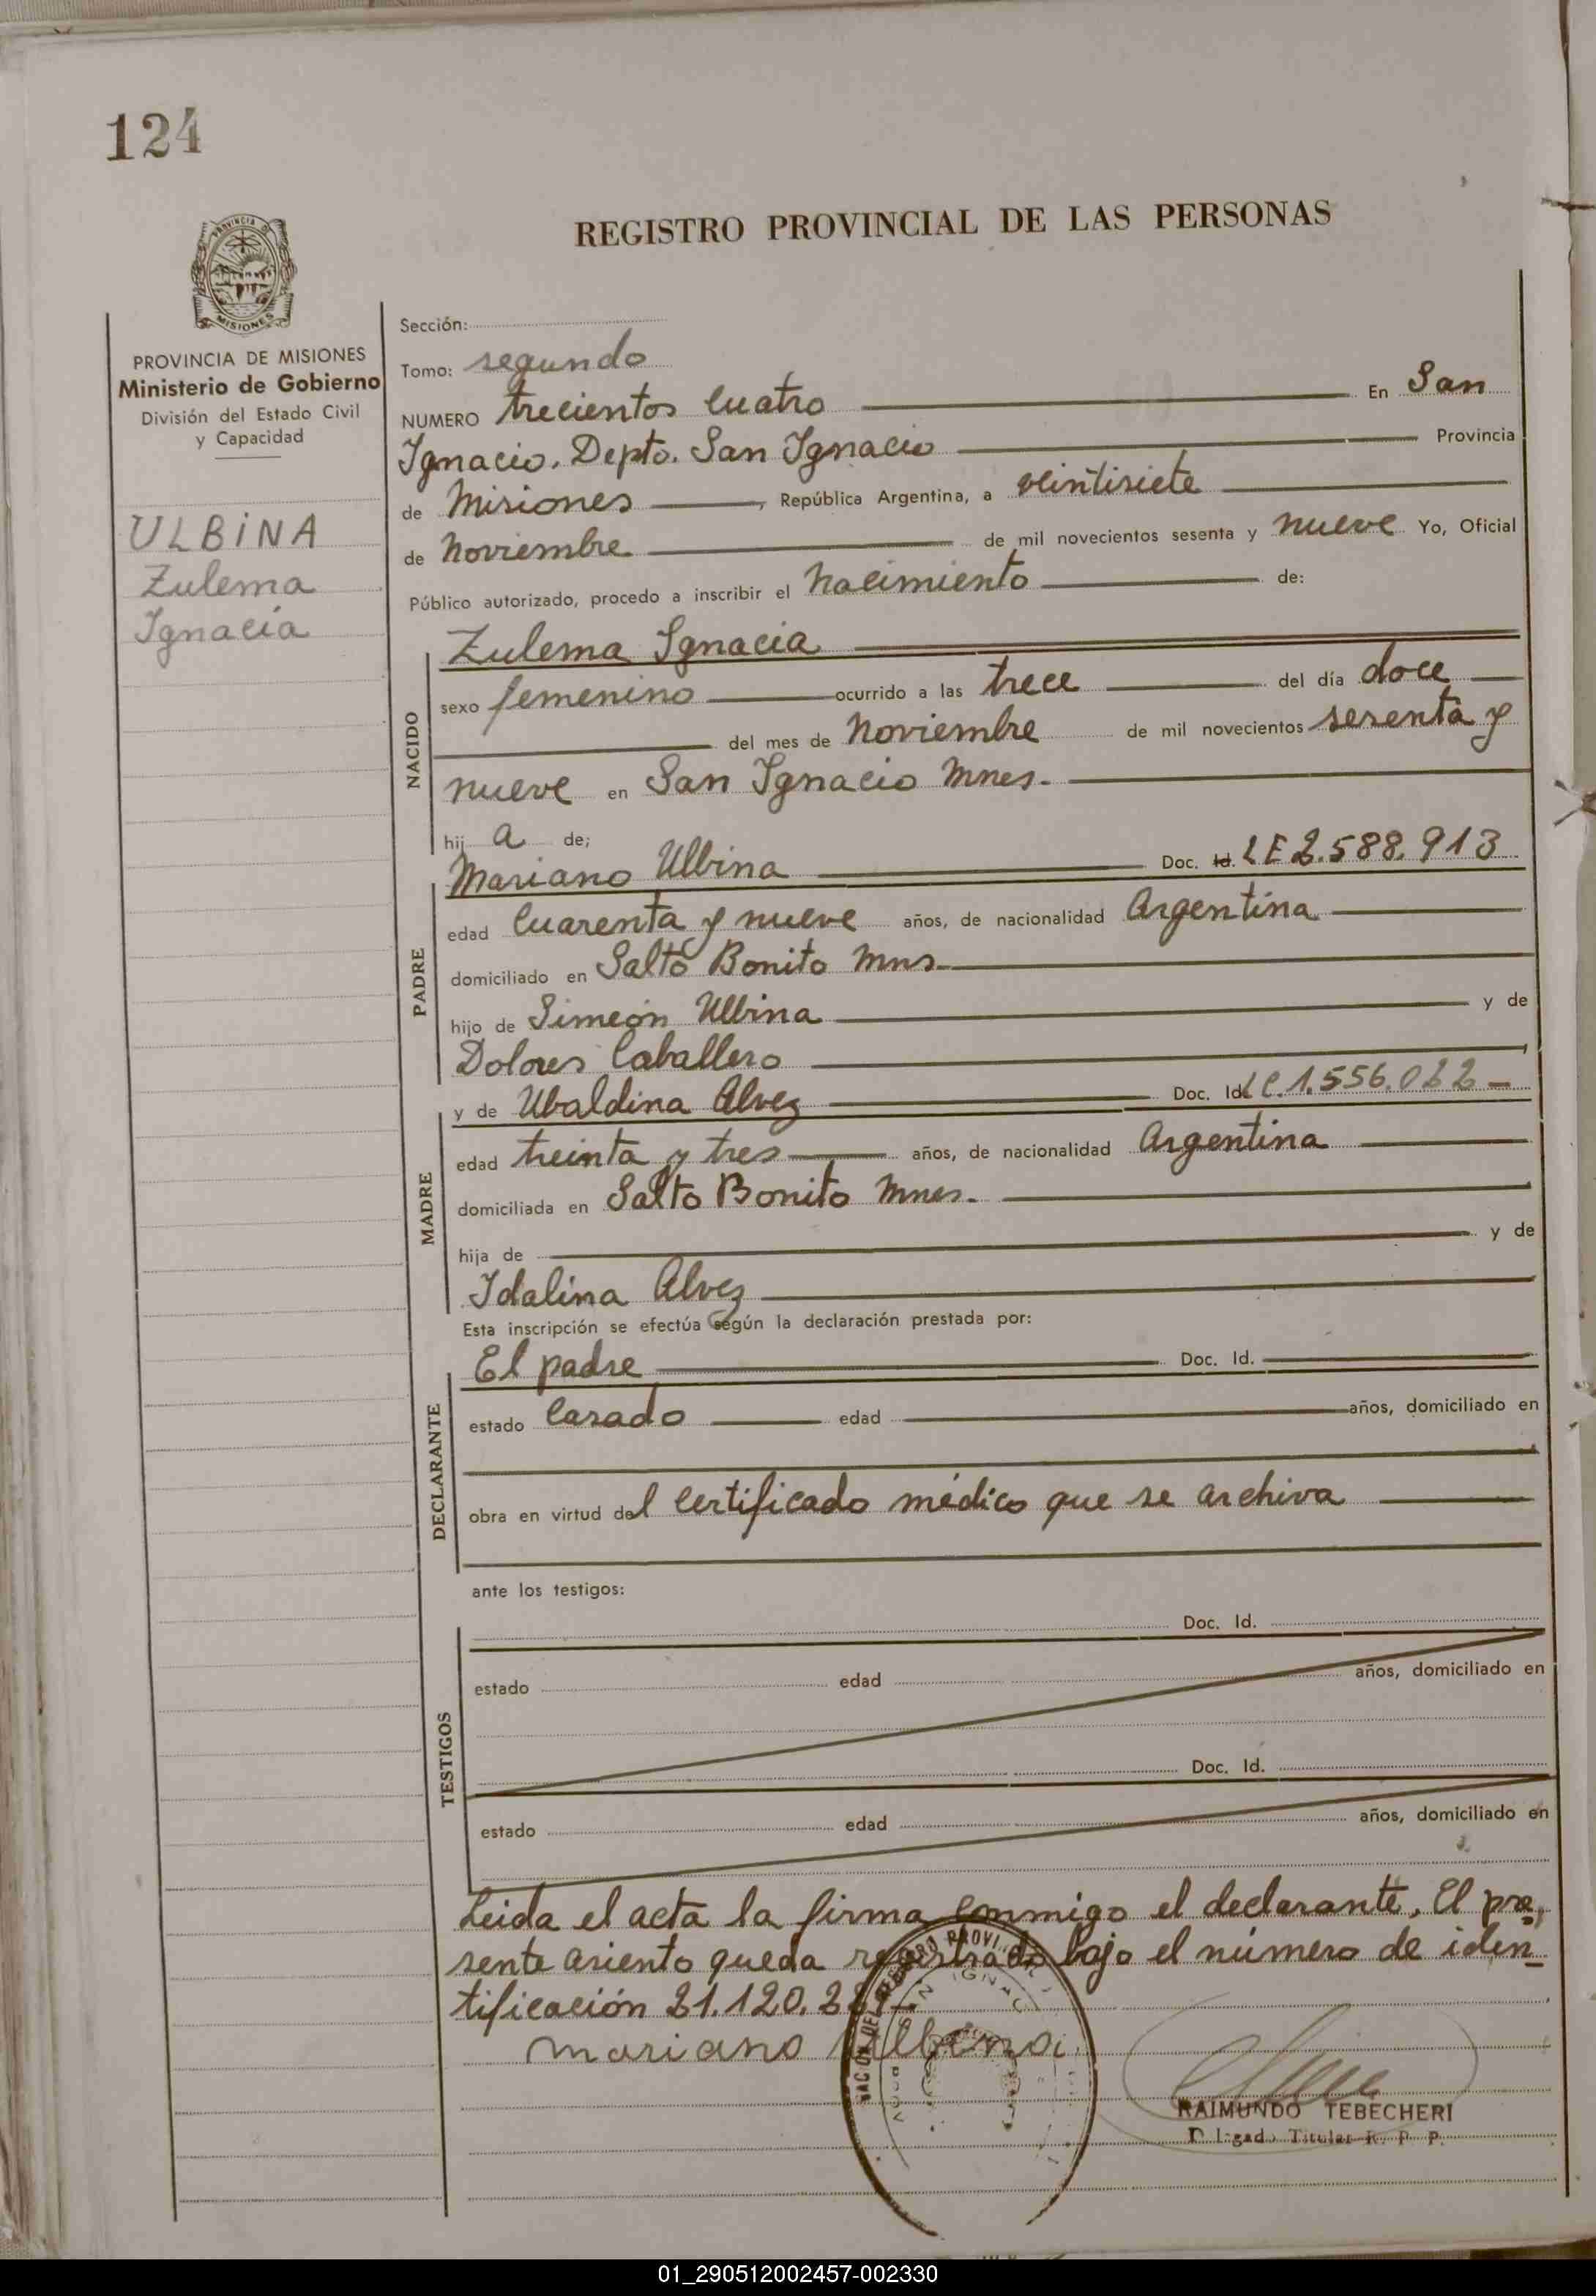 124
REGISTRO PROVINCIAL DE LAS PERSONAS
PROVINCIA
MISIONES
PROVINCIA DE MISIONES
Ministerio de Gobierno
División del Estado Civil
y Capacidad
ULBINA
Zulema
Ignacia
Sección:
Tomo: segundo
NUMERO trecientos cuatro En San
Ignacio, Depto. San Ignacio Provincia
de Misiones, República Argentina, a veintisiete
de Noviembre de mil novecientos sesenta y nueve Yo, Oficial
Público autorizado, procedo a inscribir el Nacimiento de:
NACIDO
Zulema Ignacia
sexo femenino ocurrido a las trece del día doce
del mes de Noviembre de mil novecientos sesenta y
nueve en San Ignacio Mnes.
hij a de;
PADRE
Mariano Ulbina Doc. Id. LE 2.588.913
edad cuarenta y nueve años, de nacionalidad Argentina
domiciliado en Salto Bonito Mns
hijo de Simeón Ulbina y de
Dolores Caballero
MADRE
y de Ubaldina Alvez Doc. Id LC. 1.556.022 -
edad treinta y tres años, de nacionalidad Argentina
domiciliada en Salto Bonito Mnes.
hija de y de
Idalina Alvez
Esta inscripción se efectúa según la declaración prestada por:
DECLARANTE
El padre Doc. Id.
estado Casado edad años, domiciliado en
obra en virtud del certificado médico que se archiva
ante los testigos:
TESTIGOS
Doc. Id.
estado edad años, domiciliado en
Doc. Id.
estado edad años, domiciliado en
Leida el acta la firma conmigo el declarante. El pre-
sente asiento queda registrado bajo el número de iden-
tificación 21.120.
mariano Ulbina
RAIMUNDO TEBECHERI
Titular R. P. P.
01_290512002457-002330